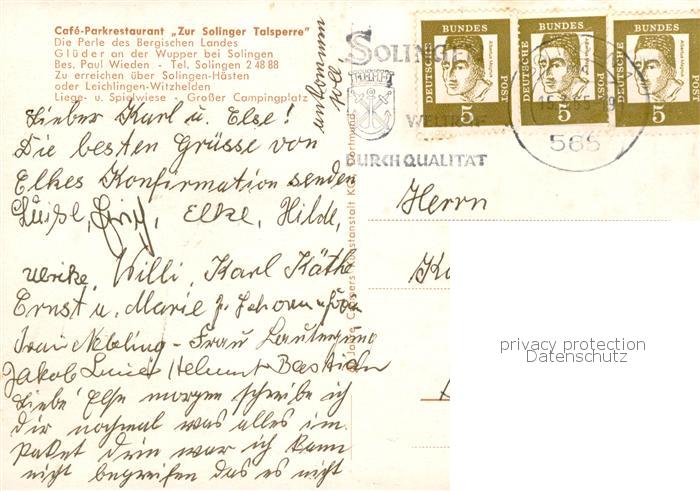 Café-Parkrestaurant „Zur Solinger Talsperre"
Die Perle des Bergischen Landes
Glüder an der Wupper bei Solingen
Bes. Paul Wieden - Tel. Solingen 2 48 88
Zu erreichen über Solingen-Hästen
oder Leichlingen-Witzhelden
Liege- u. Spielwiese - Großer Campingplatz
Lieber Karl u. Else!
Die besten Grüsse von
Elkes Konfirmation senden
Luise, Elke, Hilde,
Ulrike, Willi, Karl Käthe
Ernst u. Marie
Frau Nebeling - Frau
Jakob Helmut Bastian
Liebe Else morgen schreibe ich
dir nochmal was alles im
Paket drin war ich kann
nicht begreifen das es nicht
ankommen
soll
Kunstanstalt KG Dortmund
SOLINGEN
WELTRUF
DURCH QUALITAT
565
DEUTSCHE BUNDES POST
5
DEUTSCHE BUNDES POST
5
DEUTSCHE BUNDES POST
5
Herrn
privacy protection
Datenschutz